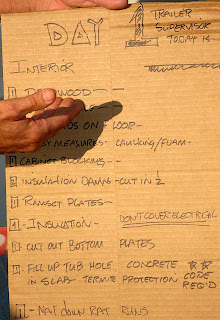 DAY
1
TRAILER
SUPERVISOR
TODAY IS
INTERIOR
ON FLOOR-
MEASURES- CAULKING/FOAM-
CABINET BLOCKING--
INSULATION DAMNS-CUT IN ½
RAMSET PLATES-
-INSULATION- DON'T COVER ELECTRICAL
CUT OUT BOTTOM PLATES
FILL UP TUB HOLE CONCRETE ☆☆
IN SLAB- TERMITE PROTECTION CODE REQ'D
-NAIL DOWN RAT RUNS